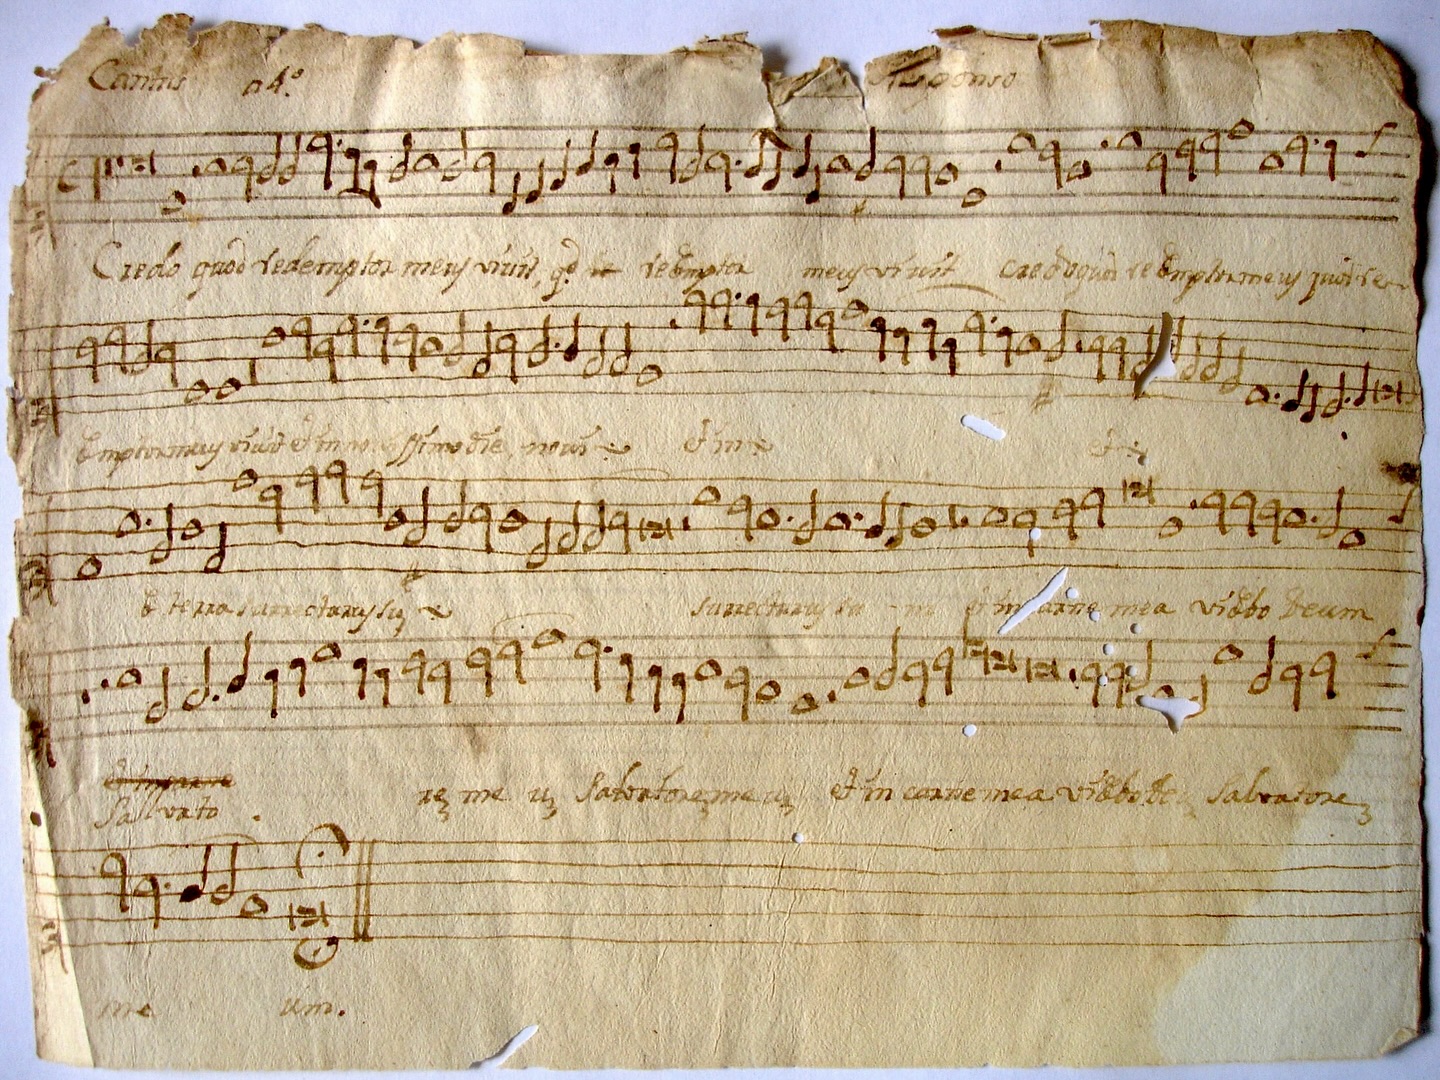 Cantus a4º
Credo quod redemptor meus vivit, qd redemptor meus vivit credo quod redemptor meus quod re
demptor meus vivit et in novissimo die, novis et in
de terra surrecturus su surrecturus su m et in carne mea videbo Deum
Salvato rez me uz Salvatorez me uz et in carne mea videbo de Salvatorez
me um.